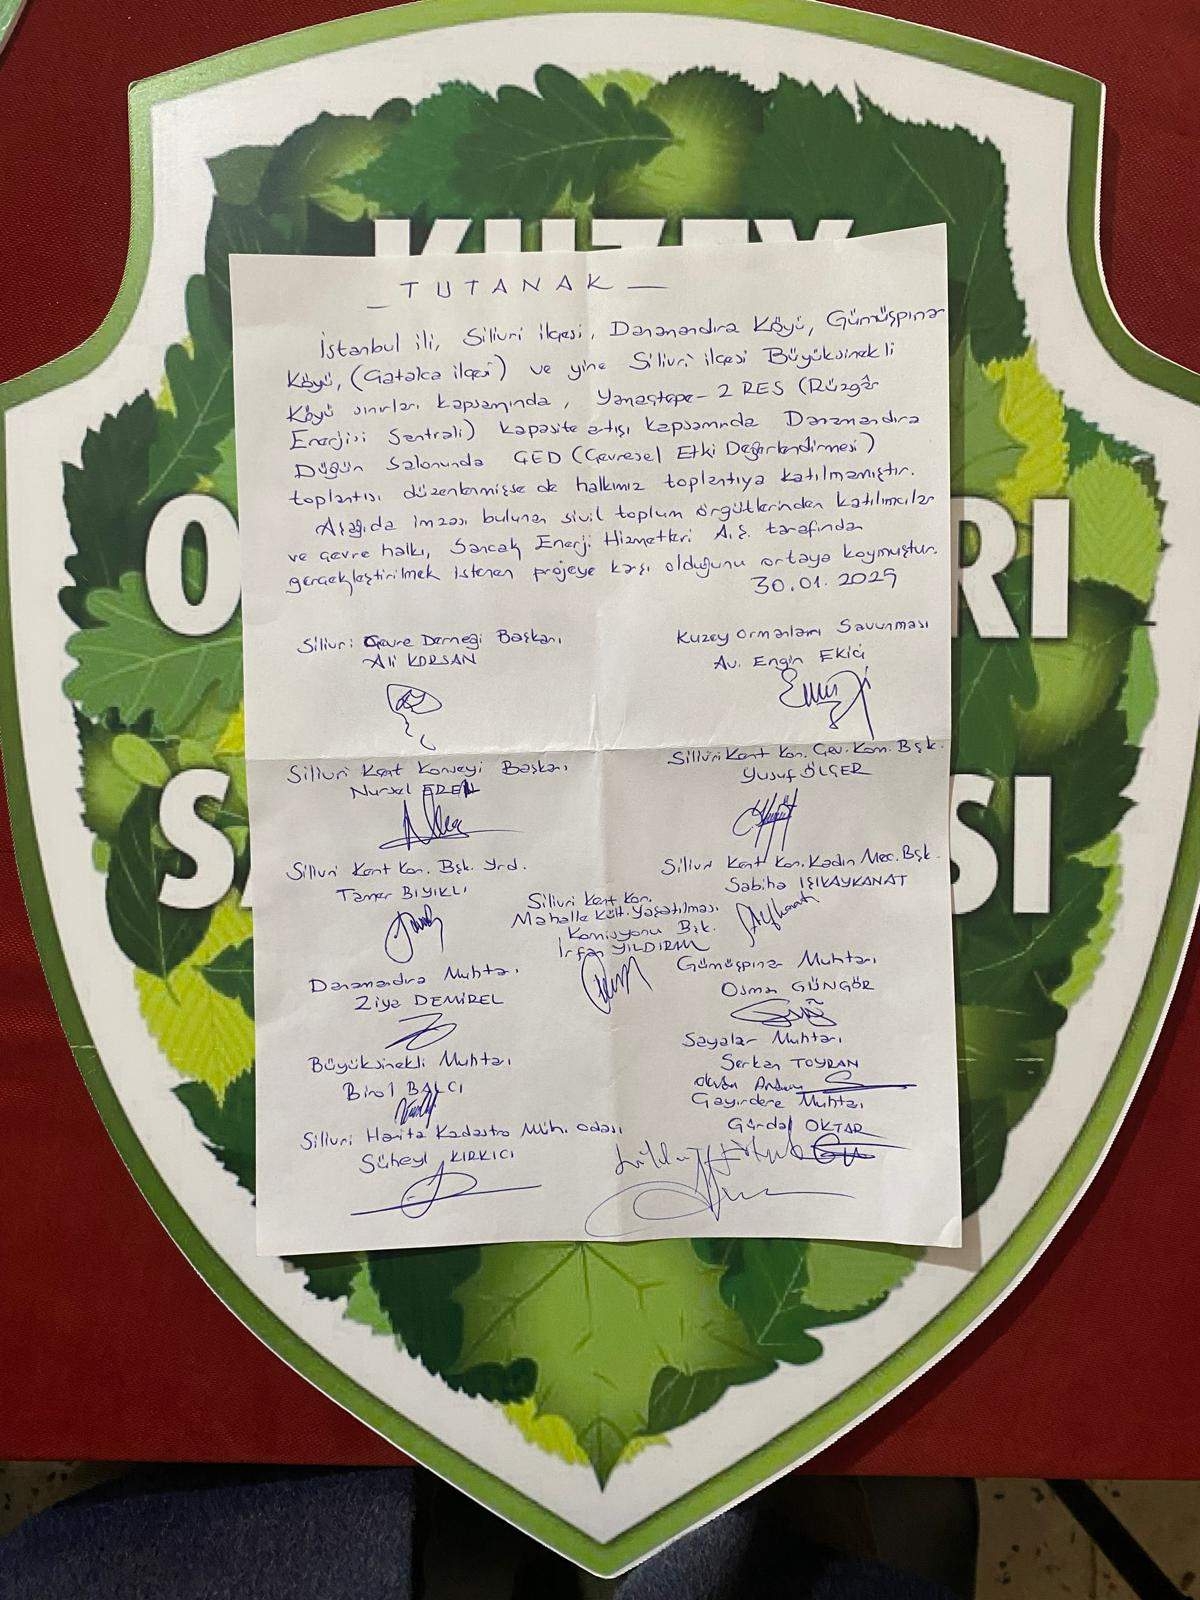 KUZEY
O RI
S SI
_ TUTANAK _
İstanbul ili, Silivri ilçesi, Danamandıra Köyü, Gümüşpınar
Köyü, (Çatalca ilçesi) ve yine Silivri ilçesi Büyüksinekli
Köyü sınırları kapsamında, Yamaçtepe-2 RES (Rüzgâr
Enerjisi Santrali) kapasite artışı kapsamında Danamandıra
Düğün Salonunda ÇED (Çevresel Etki Değerlendirmesi)
toplantısı düzenlenmişse de halkımız toplantıya katılmamıştır.
Aşağıda imzası bulunan sivil toplum örgütlerinden katılımcılar
ve çevre halkı, Sancak Enerji Hizmetleri A.Ş. tarafından
gerçekleştirilmek istenen projeye karşı olduğunu ortaya koymuştur.
30.01.2025
Silivri Çevre Derneği Başkanı
Ali KORSAN
Kuzey Ormanları Savunması
Av. Engin Ekici
Silivri Kent Konseyi Başkanı
Nursel EREN
Silivri Kent Kon. Çev. Kom. Bşk.
Yusuf ÖLÇER
Silivri Kent Kon. Bşk. Yrd.
Tamer BIYIKLI
Silivri Kent Kon. Kadın Mec. Bşk.
Sabiha IŞIKAYKANAT
Silivri Kent Kon.
Mahalle Kült. Yaşatılması
Komisyonu Bşk.
İrfan YILDIRIM
Danamandıra Muhtarı
Ziya DEMİREL
Gümüşpınar Muhtarı
Osman GÜNGÖR
Büyüksinekli Muhtarı
Birol BALCI
Sayalar Muhtarı
Serkan TOYRAN
Çayırdere Muhtarı
Gürdal OKTAR
Silivri Harita Kadastro Müh. Odası
Süheyl KIRKICI